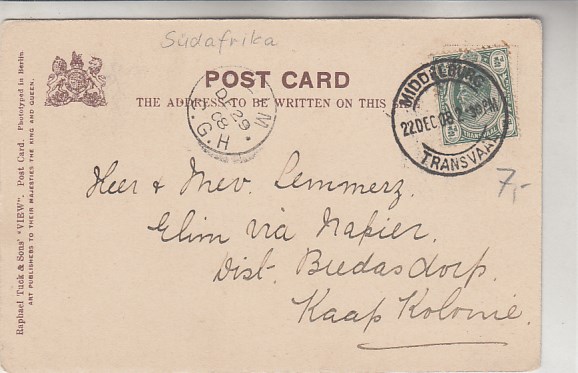 Südafrika
POST CARD
THE ADDRESS TO BE WRITTEN ON THIS
MIDDELBURG
22 DEC 08
TRANSVAAL
M
DE 29
08
G. H.
7,-
Heer & Mev. Lemmerz.
Elim via Napier.
Dist. Bredasdorp.
Kaap Kolonie.
Raphael Tuck & Sons' "VIEW". Post Card. Phototyped in Berlin.
ART PUBLISHERS TO THEIR MAJESTIES THE KING AND QUEEN.